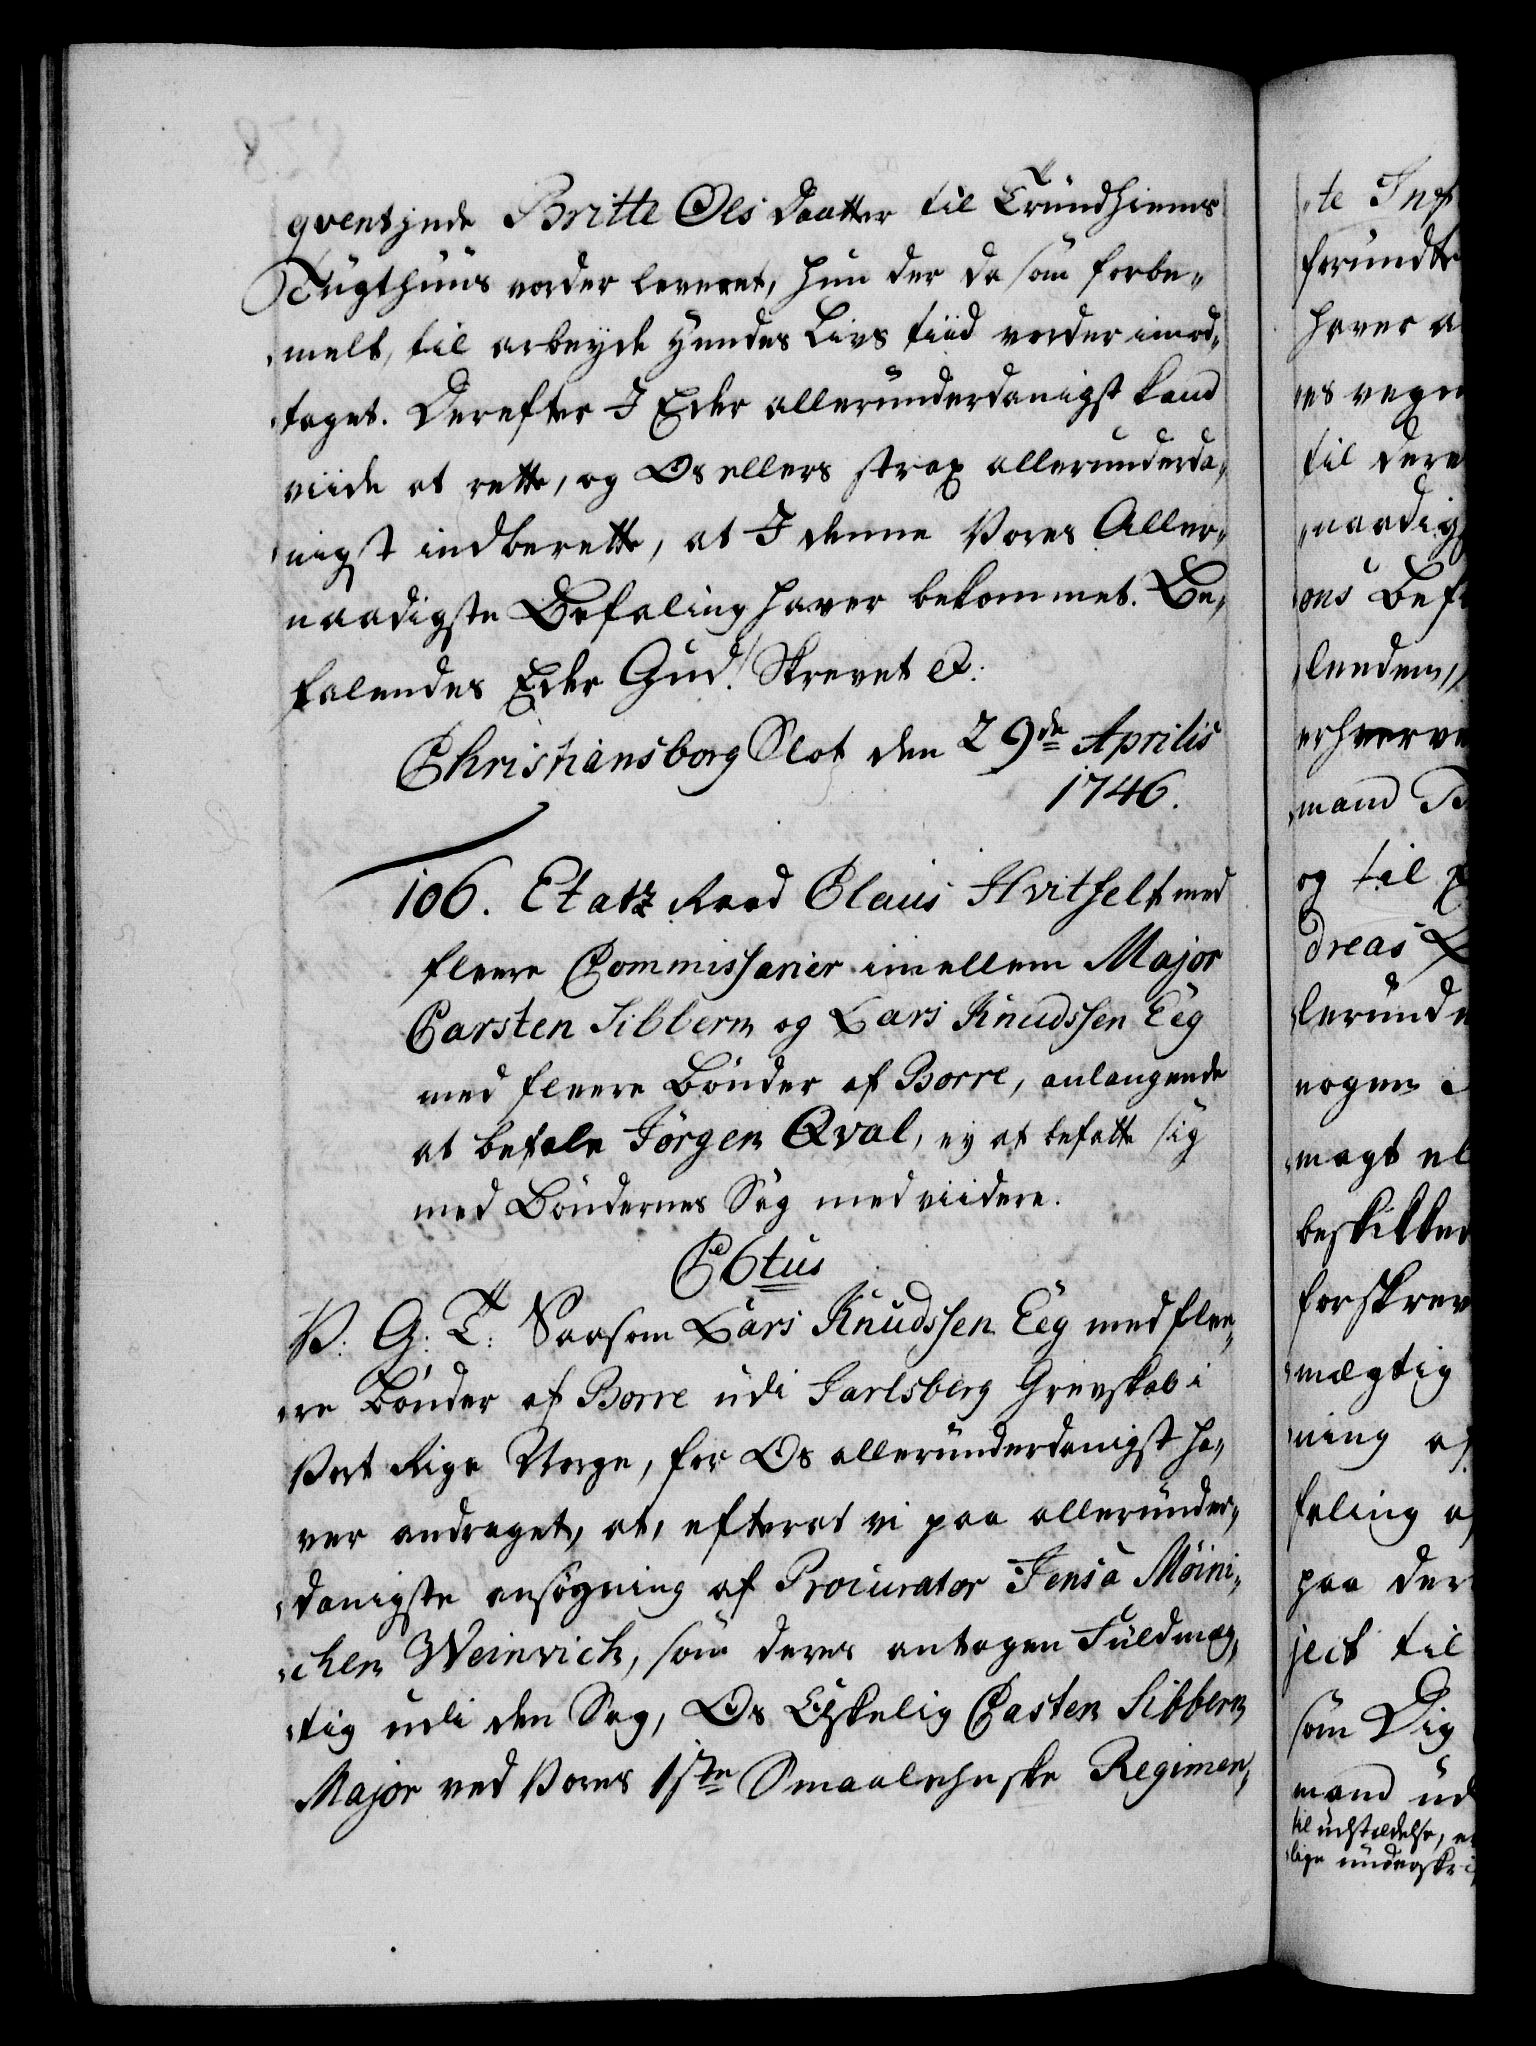 qventjnde Britte Ols Daatter til Trundhiems
Tugthuus vorder leveret, hun der da som forbe„
„melt, til arbeyde hendes Livs tiid vorder imod„
„taget. Derefter I Eder allerunderdanigst kand
viide at rette, og Os ellers strax allerunderda„
„nigst indberette, at I denne Vores Aller„
naadigste Befaling haver bekommet. Be„
falendes Eder Gud! Skrevet &.
Christiansborg Slot den 29de Aprilis
1746.
106. Etatz Raad Claus Hvitfelt med
fleere Commissarier imellem Major
Carsten Sibbern og Lars Knudssen Eeg
med fleere Bönder af Borre, anlangende
at befale Jörgen Qval, ey at befatte sig
med Böndernes Sag med viidere.
C6tus
V. G. T: Saasom Lars Knudssen Eeg med flee„
„re Bönder af Borre udi Jarlsberg Grevskab i
Vort Rige Norge, for Os allerunderdanigst ha„
ver andraget, at, efterat vi paa allerunder„
„danigste ansögning af Procurator Jens a Möini„
„chen Weinvich, som deres antagen Fuldmæg„
„tig udi den Sag, Os Elskelig Casten Sibbern
Major ved Vores 1ste Smaalehnske Regimen„
te Inf
forundt
haver a
es vegn
til dere
„naadig
ons Bef
lendem
erhverve
mand
og til
dreas
lerunde
nogen
magt el
beskikked
forskrev
mægtig
ning af
faling
paa der
ject til
som Dig
mand ud
til udstædelse,
lige underskri